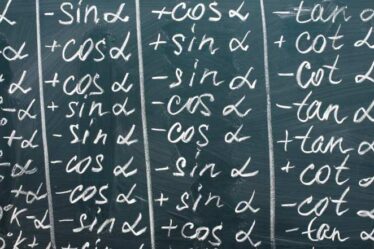 α -sin α +cos α -tan α
α +cos α +sin α + cot α
α +cos α -sin α -cot α
α + sin α -cos α -tan α
+α -sin α -cos α +tan α
α -cos α -sin α + cot α
+α -cos α + sin α -cot α
K-α -sin α + cos α -tan α
+cos α